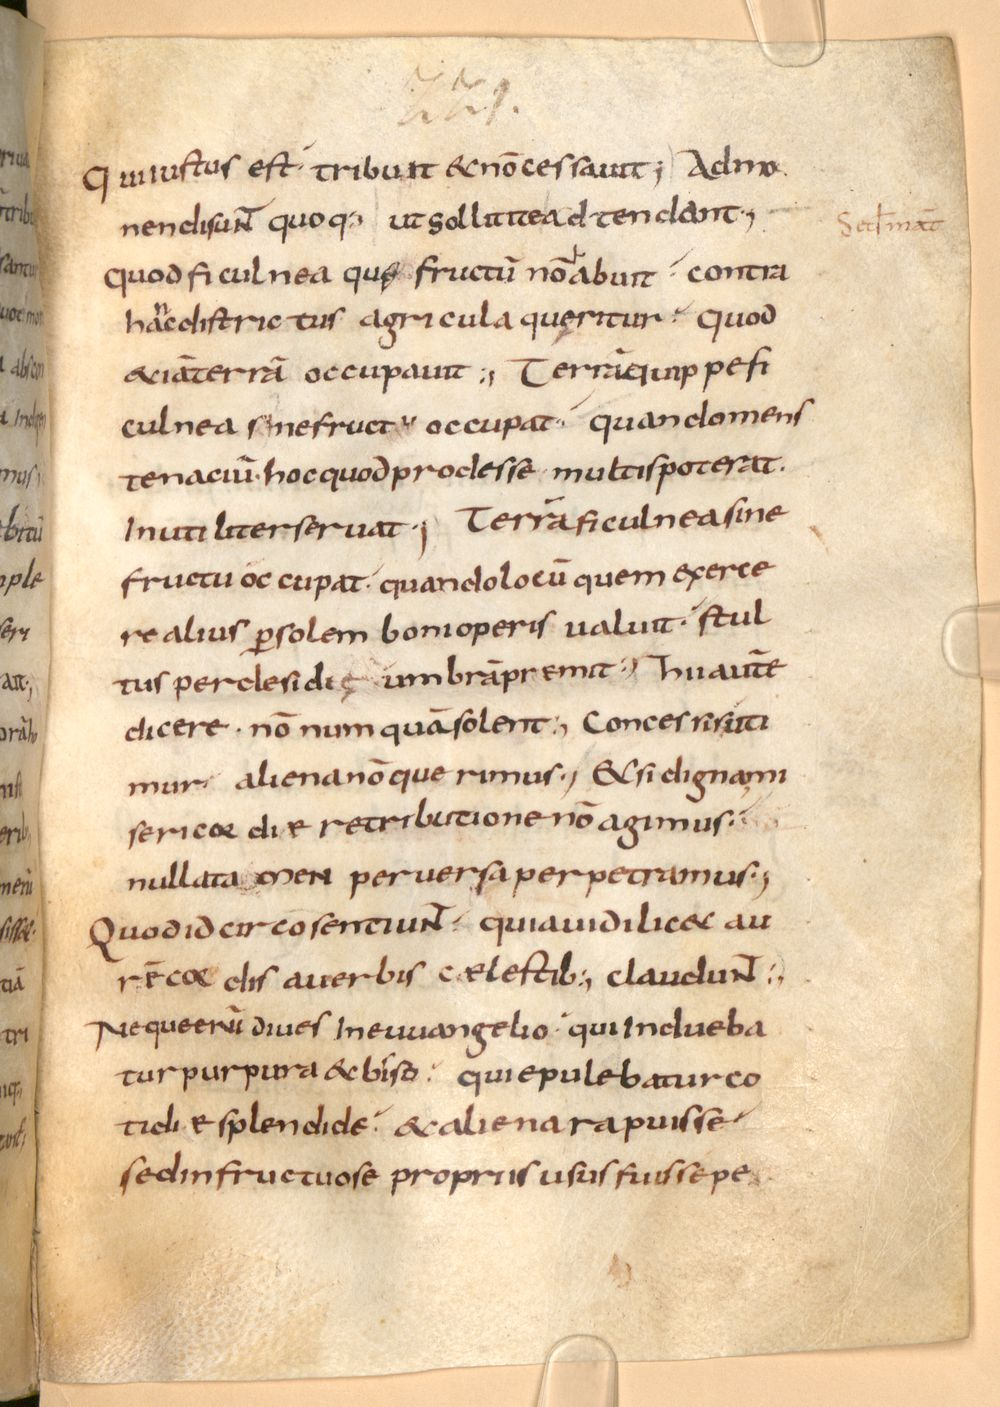 221.
Qui iustus est· tribuit &nōcessauit; Admo
nendisunt quoq; ut sollicite adtendant·;
Scdm̄ mat̄
quod ficulnea quę fructū nō habuit· contra
hanc districtus agricula queritur· quod
&iāterrā occupauit·; Terrā quippe fi
culnea sinefructu occupat· quandomens
tenaciū·hocquodprodesse multispoterat·
Inutiliterseruat·; Terrā ficulneasine
fructu occupat· quandolocū quem exerce
re alius ꝑsolem boni operis ualuit· stul
tus perdesidię umbrāpremit·; hi autē
dicere· nō numquāsolent·; Concessis uti
mur· aliena nōquerimus·; &si digna mi
sericordiae retributione nō agimus·
nulla tamen peruersa perpetramus·;
Quod idcircosentiunt· quia uidilicet au
rēcordis auerbis cælestib·; claudunt·;
Neque enī diues Ineuuangelio· qui Indueba
tur purpura &bisso· qui epulebatur co
tidie splendide· &aliena rapuisse·
sedinfructuose propriis usus fuisse pe